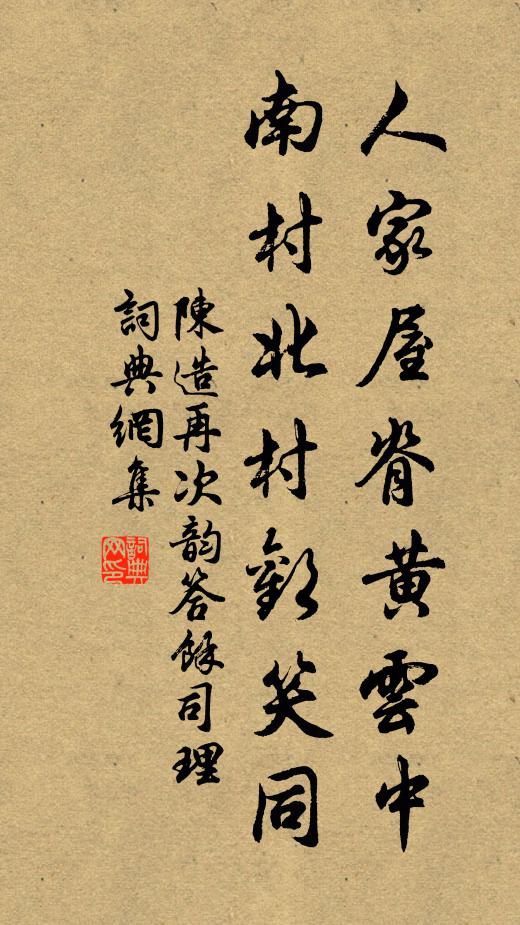 人家屋脊黃雲中
南村北村歡笑同
陳造再次韵答餘司理
詞典網集
詞典
网印